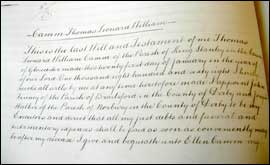 Camm Thomas Leonard William
This is the last Will and Testament of me Thomas
Leonard William Camm of the Parish of King Stanley in the County
of Gloucester made this twenty first day of January in the year of
our Lord One thousand eight hundred and sixty eight I hereby
revoke all wills by me at any time heretofore made I appoint John
of the Parish of in the County of Derby and
of the Parish of in the County of Derby to be my
Executors and direct that all my just debts and funeral and
testamentary expenses shall be paid as soon as conveniently may be
after my decease I give and bequeath unto Ellen Camm my